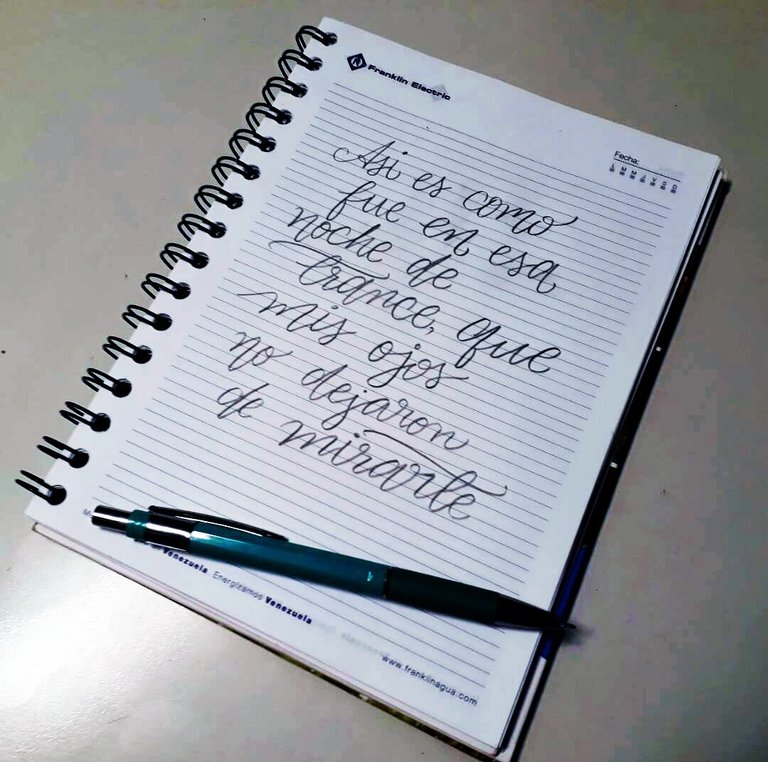 Franklin Electric
Fecha:
L M M J V S D
Asi es como
fue en esa
noche de
trance, que
mis ojos
no dejaron
de mirarte
Venezuela Energizamos Venezuela
www.franklinagua.com